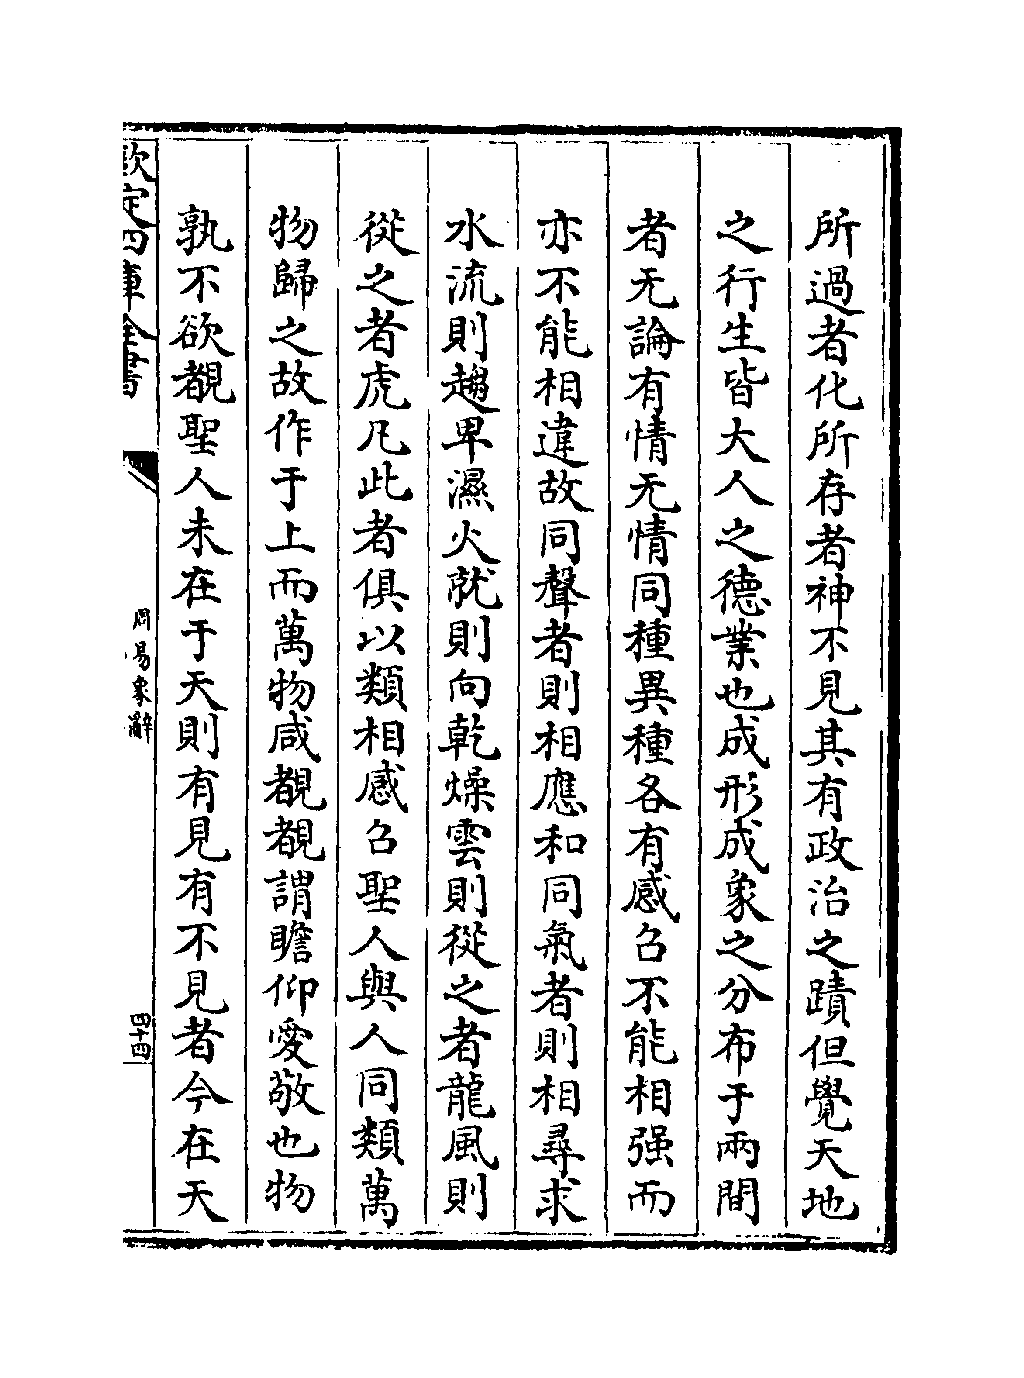 所過者化所存者神不見其有政治之蹟但覺天地
之行生皆大人之德業也成形成象之分布于兩間
者无論有情无情同種異種各有感召不能相强而
亦不能相違故同聲者則相應和同氣者則相尋求
水流則趨卑濕火就則向乾燥雲則從之者龍風則
從之者虎凡此者俱以類相感召聖人與人同類萬
物歸之故作于上而萬物咸覩覩謂瞻仰愛敬也物
孰不欲覩聖人未在于天則有見有不見者今在天
欽定四庫全書
周易象辭
四十四